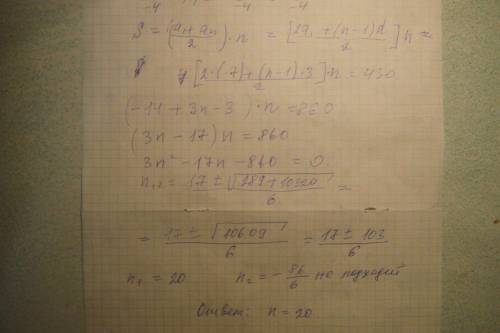 -4 -4 -4
S = (a₁ + aₙ / 2) · n = [2a₁ + (n-1)d / 2] n =
[2·(-7) + (n-1)·3 / 2] · n = 430
(-14 + 3n - 3) · n = 860
(3n - 17) n = 860
3n² - 17n - 860 = 0
n₁,₂ = 17 ± √289 + 10320 / 6 =
= 17 ± √10609 / 6 = 17 ± 103 / 6
n₁ = 20 n₂ = - 86/6 не подходит
Ответ: n = 20